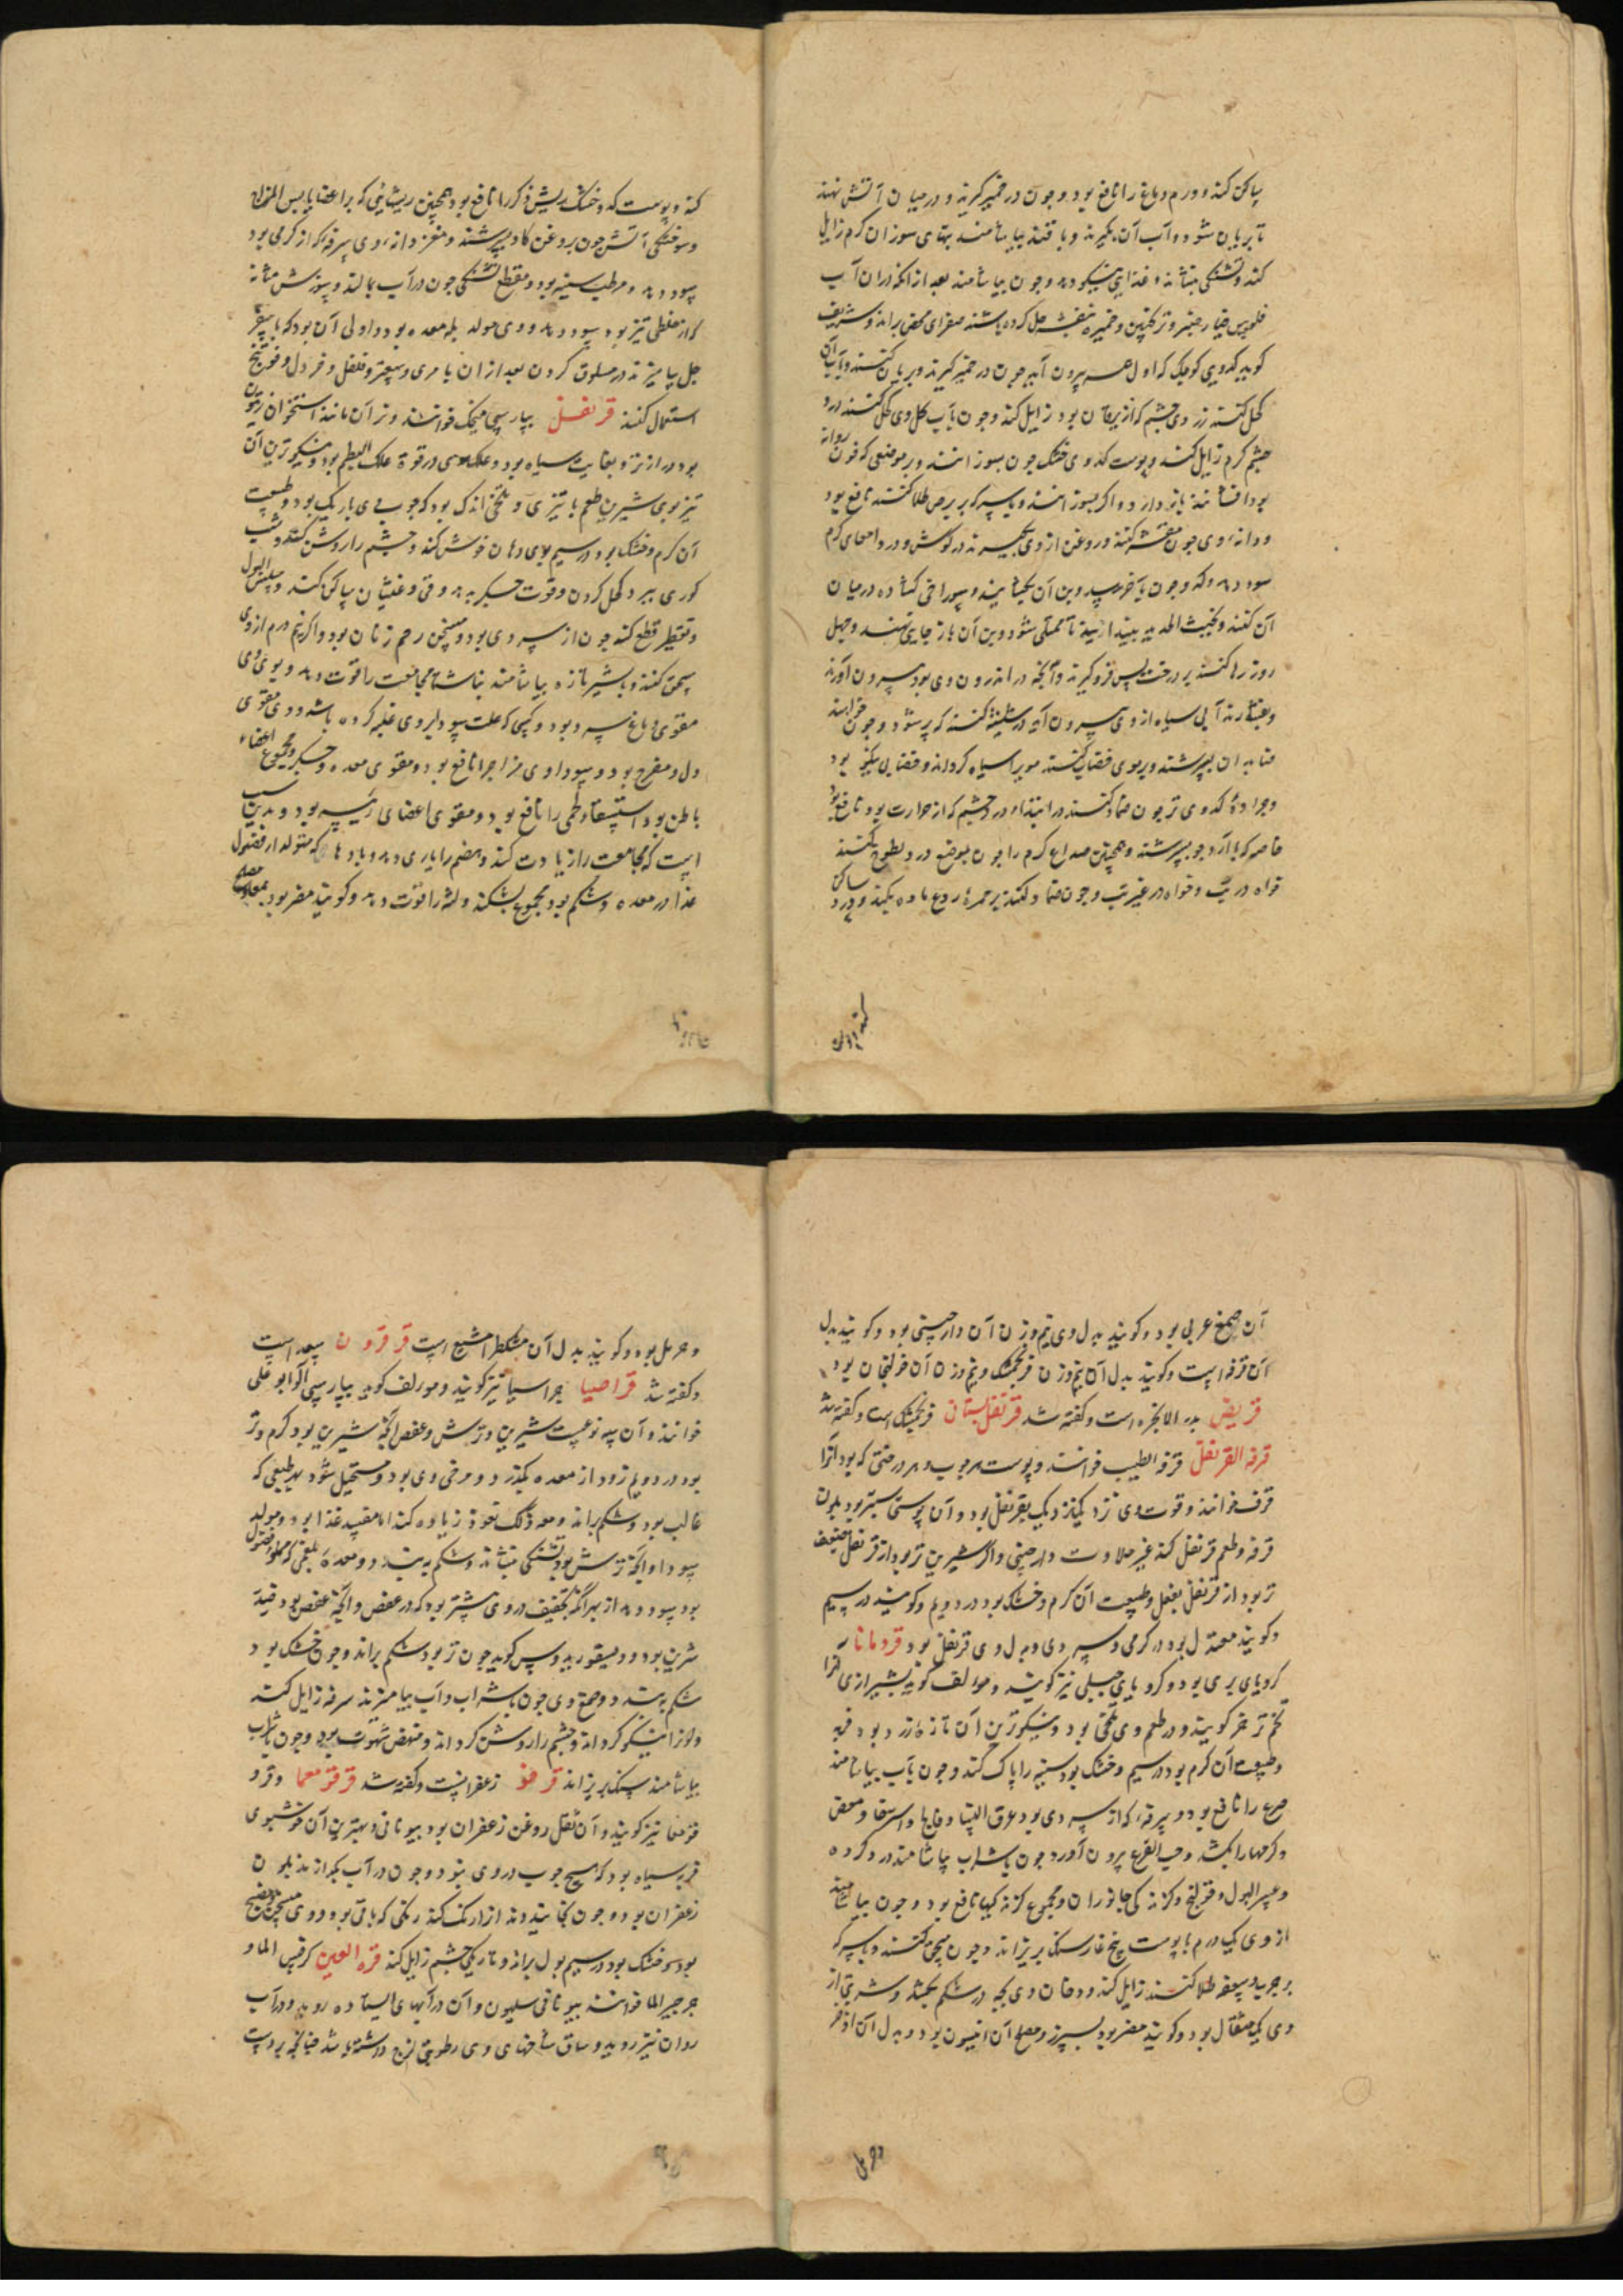 ساکن کند و ورم دماغ را نافع بود و چون در خمیر گیرند و در میان آتش نهند
تا بریان شود و آب آن بگیرند و با قند بیاشامند تبهای سوزان گرم زایل
کند و تشنگی بنشاند و غذایی نیکو دهد و چون بیاشامند بعد از آنکه در آن آب
فلوس خیارچنبر و ترنجبین و خمیره بنفشه حل کرده باشند صفرای محض براند و شریف
گوید کدویی کوچک که اول بیرون آید چون در خمیر گیرند و بریان کنند و بآب آن
کحل کنند زردی چشم که از یرقان بود زایل کند و چون بآب کل وی کحل کنند درد
چشم گرم زایل کند و پوست کدوی خشک چون بسوزانند و بر موضعی که خون روانه
بود افشانند باز دارد و اگر بسوزانند و با سرکه بر برص طلا کنند نافع بود
و دانه وی چون مقشر کنند و روغن از وی بگیرند درد گوش و درد امعای گرم
سود دهد و که چون بآخر رسد و بن آن بجنبانند و سوراخی گشاده در میان
آن کنند و بخبث الحدید بیندازند تا ممتلی شود و بن آن باز جایش نهند و چهل
روز رها کنند بر درخت پس فرو گیرند و آنچه در اندرون وی بود بیرون آورند
و بفشارند آبی سیاه از وی بیرون آید در شیشه کنند که پر شود و چون خواهند
حنا بدان بسرشند و بر موی خضاب کنند موی را سیاه گرداند و خضابی نیکو بود
و جراده کدوی تر چون ضماد کنند در ابتداء درد چشم که از حرارت بود نافع بود
خاصه که با آرد جو بسرشند و همچنین صداع گرم را چون بموضع درد لطوخ کنند
خواه در تب و خواه در غیر تب و چون ضماد کنند بر حمره ردع ماده بکند و درد ساکن
کند و پوست کدو خشک ریش ذکر را نافع بود و همچنین ریشهایی که بر اعضا یابس المزاج
و سوختگی آتش چون بروغن گاو بسرشند و مغز دانه وی سرفه که از گرمی بود
سود دهد و مرطب سینه بود و مقطع تشنگی چون در آب بمالند و سوزش مثانه
که از خلطی تیز بود سود دهد و وی مولد بله معده بود و اولی آن بود که با
خل بیامیزند در مسلوق کردن بعد از آن با مری و سعتر و فلفل و خردل و فوتنج
استعمال کنند قرنفل بپارسی میخک خوانند و نر آن مانند استخوان زیتون
بود درازتر و بغایت سیاه بود و علک وی در قوة علک البطم بود و نیکوترین آن
تیزبوی شیرین طعم با تیزی و تلخی اندک بود که چوب وی باریک بود و طبیعت
آن گرم و خشک بود در سیم بوی دهان خوش کند و چشم را روشن کند و شب
کوری ببرد کحل کردن و قوت جگر دهد و قی و غثیان ساکن کند و سلس البول
و تقطیر قطع کند چون از سردی بود و مسخن رحم زنان بود و اگر نیم درم از وی
سحق کنند و با شیر تازه بیاشامند بناشتا مجامعت را قوت دهد و بوی وی
مقوی دماغ سرد بود و کسی که علت سودا بر وی غلبه کرده باشد و وی مقوی
دل و مفرح بود و سوداوی مزاج را نافع بود و مقوی معده و جگر و مجموع اعضاء
باطن بود استسقاء لحمی را نافع بود و مقوی اعضای رئیسه بود و بدین سبب
است که مجامعت را زیادت کند و هضم را یاری دهد و بادها که متولد از فضول
غذا در معده و شکم بود مجموع بشکند و لثه را قوت دهد و گویند مضر بود بمعا و مصلح
آن صمغ عربی بود و گویند بدل وی نیم وزن آن دارچینی بود و گویند بدل
آن قرفه است و گویند بدل آن نیم وزن فرنجمشک و نیم وزن آن خولنجان بود
قریض بذر الانجره است و گفته شد قرنفل بستانی فرنجمشک است و گفته شد
قرفه القرنفل قرفه الطیب خوانند و پوست هر چوب و هر درختی که بود آنرا
قرف خوانند و قوت وی نزدیک بقرنفل بود و آن پوستی ستبر بود بلون
قرفه و طعم قرنفل کند غیر حلاوت دارچینی و اگر شیرین تر بود از قرنفل ضعیف
تر بود از قرنفل بفعل و طبیعت آن گرم و خشک بود در دویم و گویند در سیم
و گویند معتدل بود در گرمی و سردی و بدل وی قرنفل بود قردمانا
کرویای بری بود و کرویای جبلی نیز گویند و مولف گوید بشیرازی آنرا
تخم تره خر گویند و در طعم وی تلخی بود و نیکوترین آن تازه زرد بود فربه
و طبیعت آن گرم بود در سیم و خشک بود سینه را پاک کند و چون بآب بیاشامند
صرع را نافع بود و سرفه که از سردی بود و عرق النسا و فالج و استرخا و مغص
و کرمها را بکشد و حب القرع بیرون آورد چون با شراب بیاشامند درد گرده
و عسر البول و قولنج و گزندگی جانوران و مجموع گزندگیها نافع بود و چون بیاشامند
از وی یک درم با پوست بیخ غار سنگ بریزاند و چون سحق کنند و با سرکه
بر جرب و سعفه طلا کنند زایل کند و دخان وی بچه در شکم بکشد و شربتی از
وی یک مثقال بود و گویند مضر بود بسپرز و مصلح آن انیسون بود و بدل آن اذخر
و حرمل بود و گویند بدل آن مشکطرامشیع است قرقرون سعد است
و گفته شد قراصیا جراسیا نیز گویند و مولف گوید بپارسی آلوبالو علی
خوانند و آن سه نوع است شیرین و ترش و عفص آنچه شیرین بود گرم و تر
بود در دویم زود از معده بگذرد و مرخی وی بود و مستحیل شود بهر طبعی که
غالب بود و شکم براند و معه ذلک نعوظ زیاده کند اما مفسد غذا بود و مولد
سودا و آنچه ترش بود تشنگی بنشاند و شکم ببندد و معده بلغمی که مملو از فضول
بود سود دهد از بهر آنکه تجفیف در وی بیشتر بود که در عفص و آنچه عفص بود قریب
شیرین بود و دیسقوریدوس گوید چون تر بود شکم براند و چون خشک بود
شکم ببندد و صمغ وی چون با شراب و آب بیامیزند سرفه زایل کند
و لون نیکو گرداند و چشم را روشن گرداند و منهض شهوت بود و چون با شراب
بیاشامند سنگ بریزاند قرقفو زعفرانست و گفته شد قرقزمعما وقرو
قزمغا نیز گویند و آن ثفل روغن زعفران بود بیونانی و بهترین آن خوشبوی
فربه سیاه بود که هیچ چوب در وی نبود و چون در آب بگدازند بلون
زعفران بود و چون بخایند دندانرا رنگ کند رنگی که باقی بود و وی مسخن و منضج
بود و خشک بود در سیم بول براند و تاریکی چشم زایل کند قرة العین کرفس الماء و
جرجیر الماء خوانند بیونانی سلیون و آن در آبهای ایستاده روید و در آب
روان نیز روید و ساق شاخهای وی رطوبتی لزج داشته باشد چنانچه بر دست